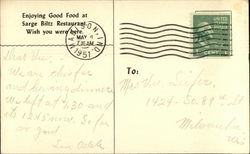 Enjoying Good Food at
Sarge Biltz Restaurant
Wish you were here.
IND.
MAY 4
7 30 AM
1951
To:
Dear Vie,
We are this far
and having dinner.
We left at 6:30 and
its 12:45 now. So far
so good.
Mrs. Vie
1424- So. 89th St
Milwaukee
Wis